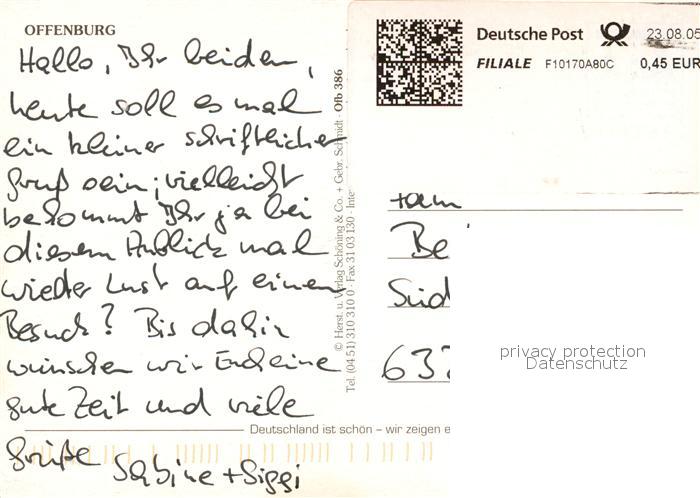 OFFENBURG
Hallo, Ihr beiden,
heute soll es mal
ein kleiner schriftlicher
Gruß sein; vielleicht
bekommt Ihr ja bei
diesem Anblick mal
wieder Lust auf einen
Besuch? Bis dahin
wünschen wir Euch eine
gute Zeit und viele
Grüße Sabine + Siggi
© Herst. u. Verlag Schöning & Co. + Gebr. Schmidt · Ofb 386
Tel. (04 51) 310 310 0 · Fax 31 03 130 · Inte
Deutsche Post 23.08.05
FILIALE F10170A80C 0,45 EUR
Fam
Be
Süd
63
privacy protection
Datenschutz
Deutschland ist schön – wir zeigen e